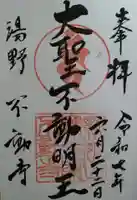 奉拝
令和七年
六月二十二日
大聖不動明王
湯野
不動寺